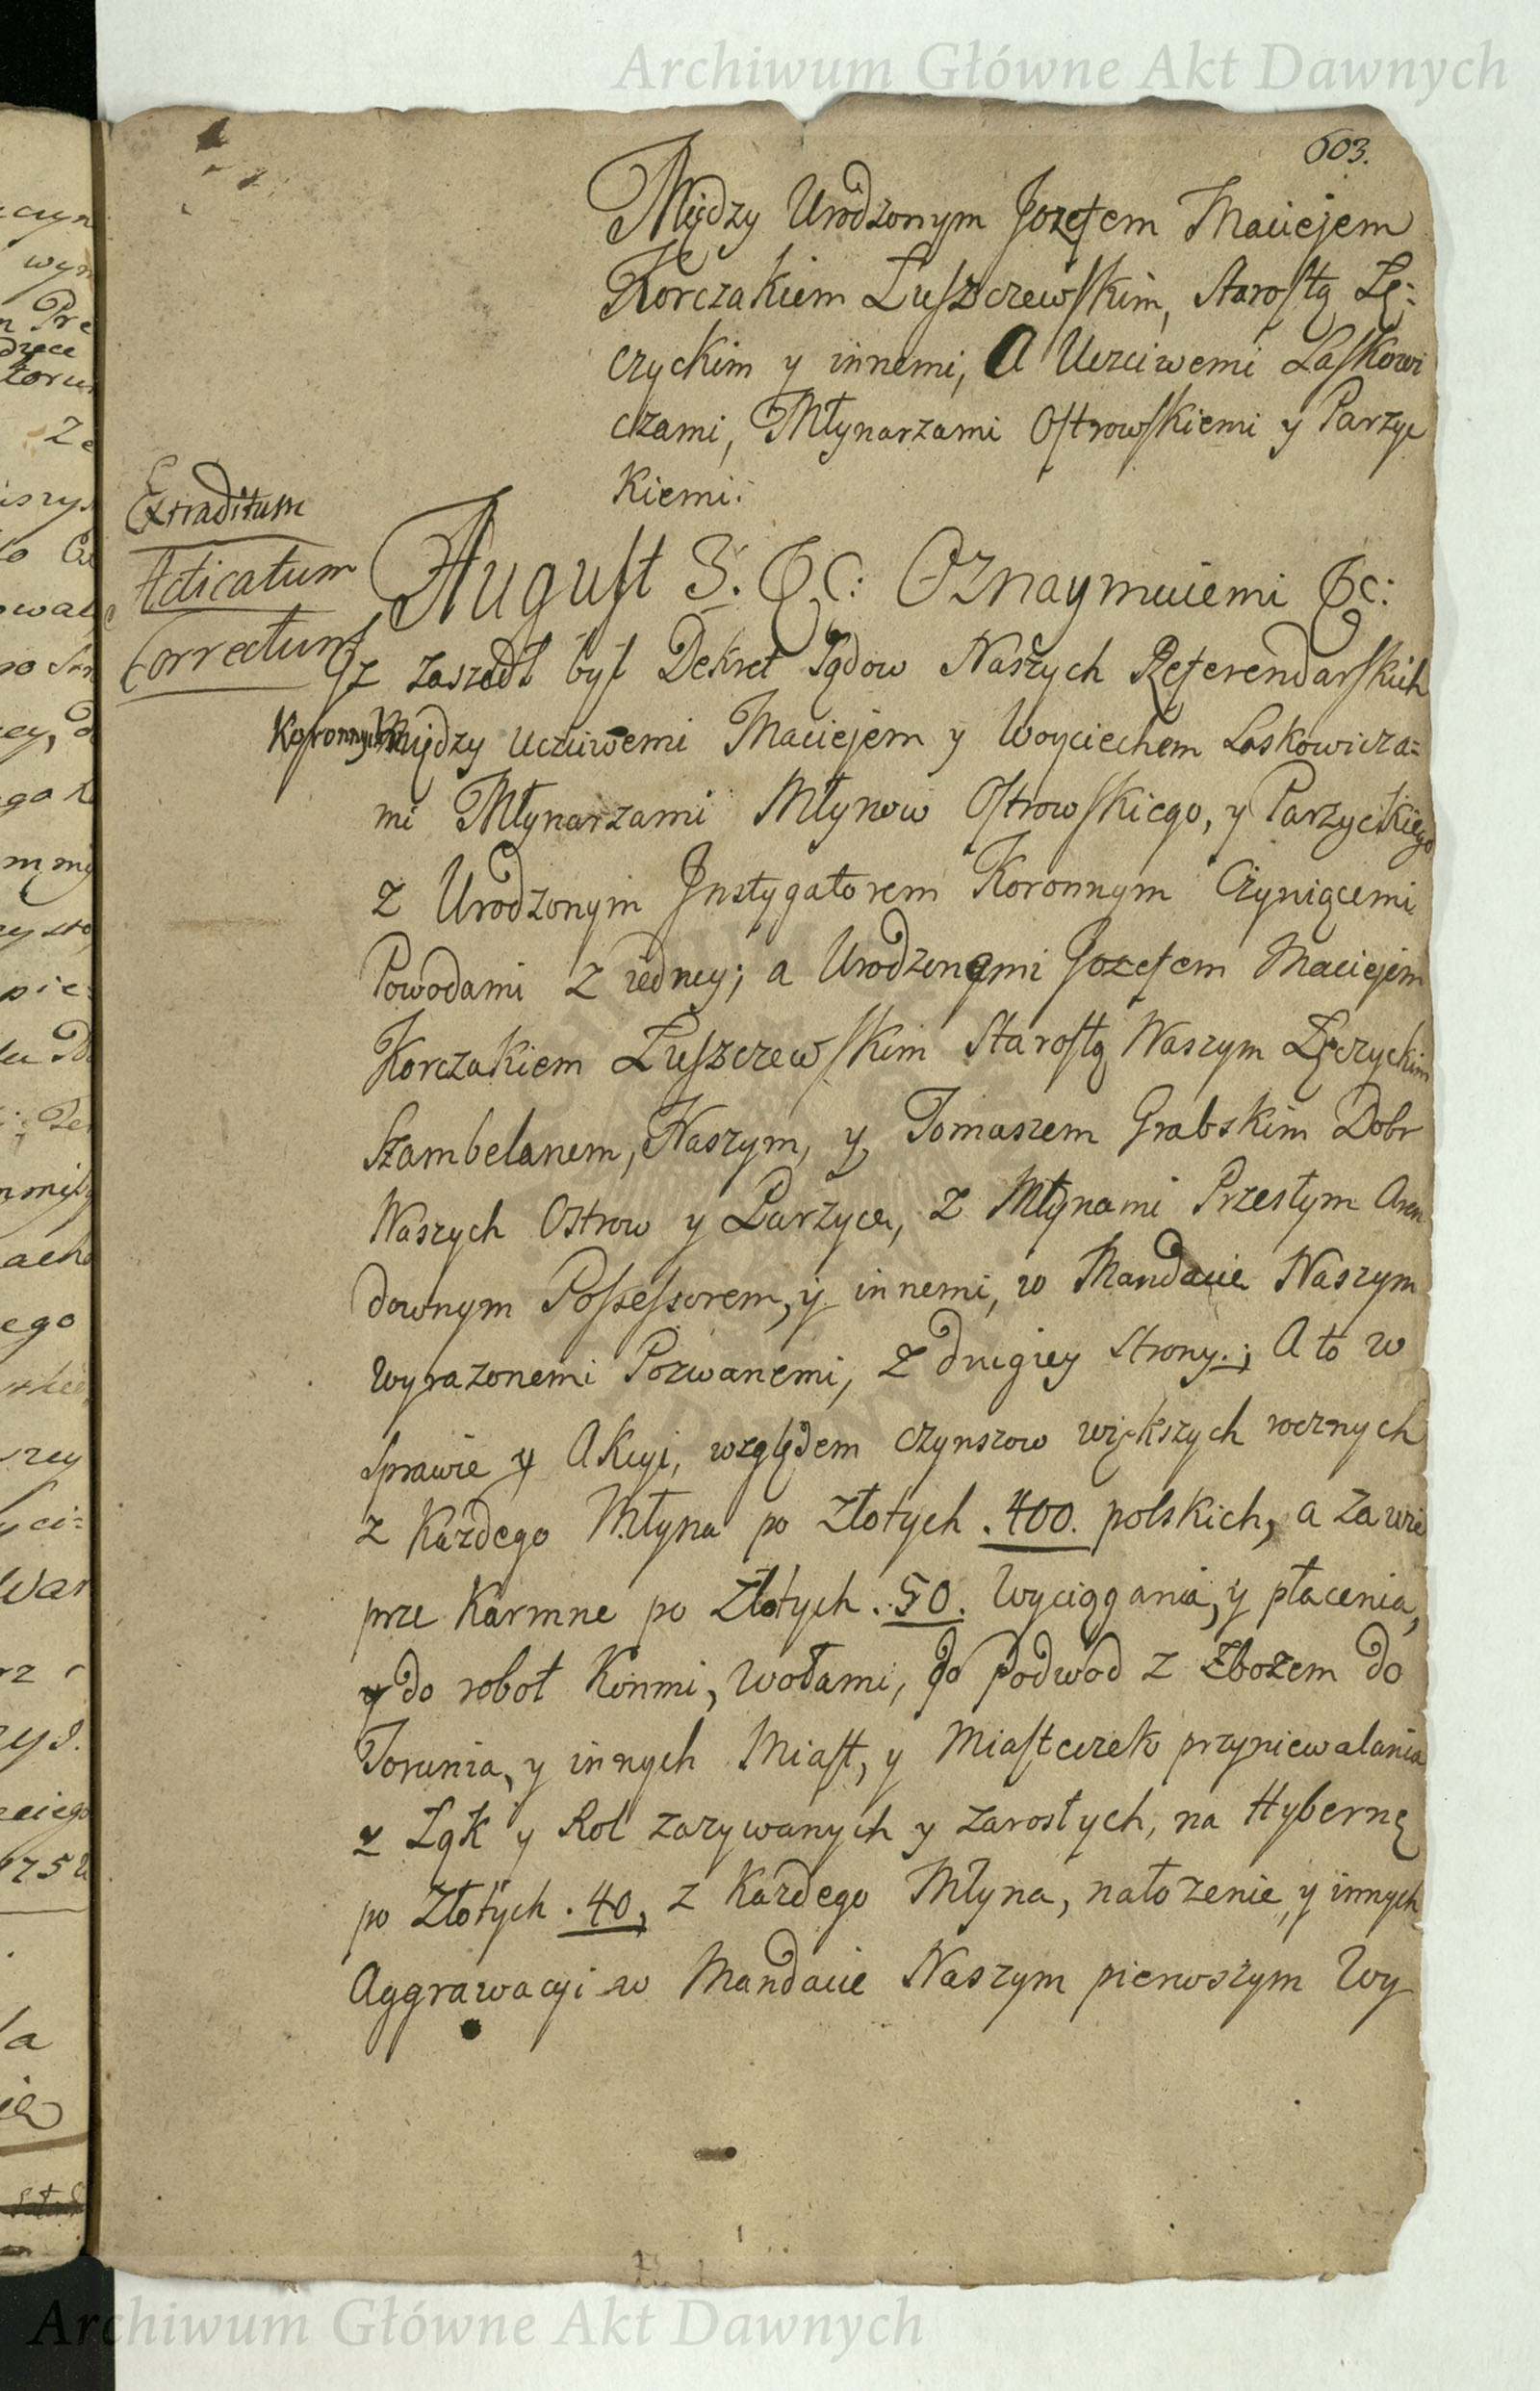 Archiwum Główne Akt Dawnych
603.
Między Urodzonym Jozefem Maciejem
Korczakiem Łuszczewskim, Starostą Łę-
czyckim y innemi, A Uczciwemi Laskowi
czami, Młynarzami Ostrowskiemi y Parzyc
kiemi.
Extraditum
Acticatum
Correctum
August 3. &c: Oznaymuiemi &c:
Jz zaszedł był Dekret Sądow Naszych Referendarskich
Koronnych Między Uczciwemi Maciejem y Woyciechem Laskowicza=
mi Młynarzami Młynow Ostrowskiego, y Parzyckiego
z Urodzonym Jnstygatorem Koronnym Czyniącemi
Powodami z iedney; a Urodzonemi Jozefem Maciejem
Korczakiem Łuszczewskim Starostą Naszym Łęczyckim
Szambelanem, Naszym, y Tomaszem Grabskim Dobr
Naszych Ostrow y Parzyce, z Młynami Przeszłym Aren
downym Possessorem, y innemi, w Mandacie Naszym
wyrazonemi Pozwanemi, z drugiey Strony.; A to w
sprawie y Akcyi, względem czynszow większych rocznych
z Kazdego Młyna po Złotych .400. polskich, a za wie
prze Karmne po Złotych .50. Wyciągania, y płacenia,
y do robot Konmi, Wołami, do podwod z Zbozem do
Torunia, y innych Miast, y Miasteczek przyniewalania
z Łąk y Rol zarywanych y zarosłych, na Hybernę
po Złotych .40, z Kazdego Młyna, nałozenie, y innych
Aggrawacyi w Mandacie Naszym pierwszym Wy
Archiwum Główne Akt Dawnych